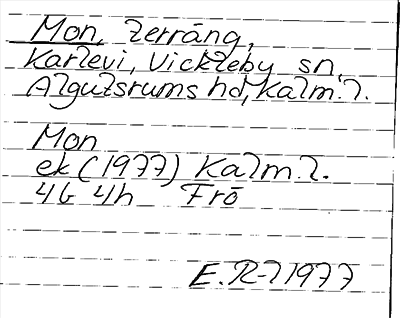 Mon, terräng,
Karlevi, Vickleby sn,
Algutsrums hd, Kalm. l.
Mon
ek (1977) Kalm. l.
4G 4h Frö
E. R-l 1977